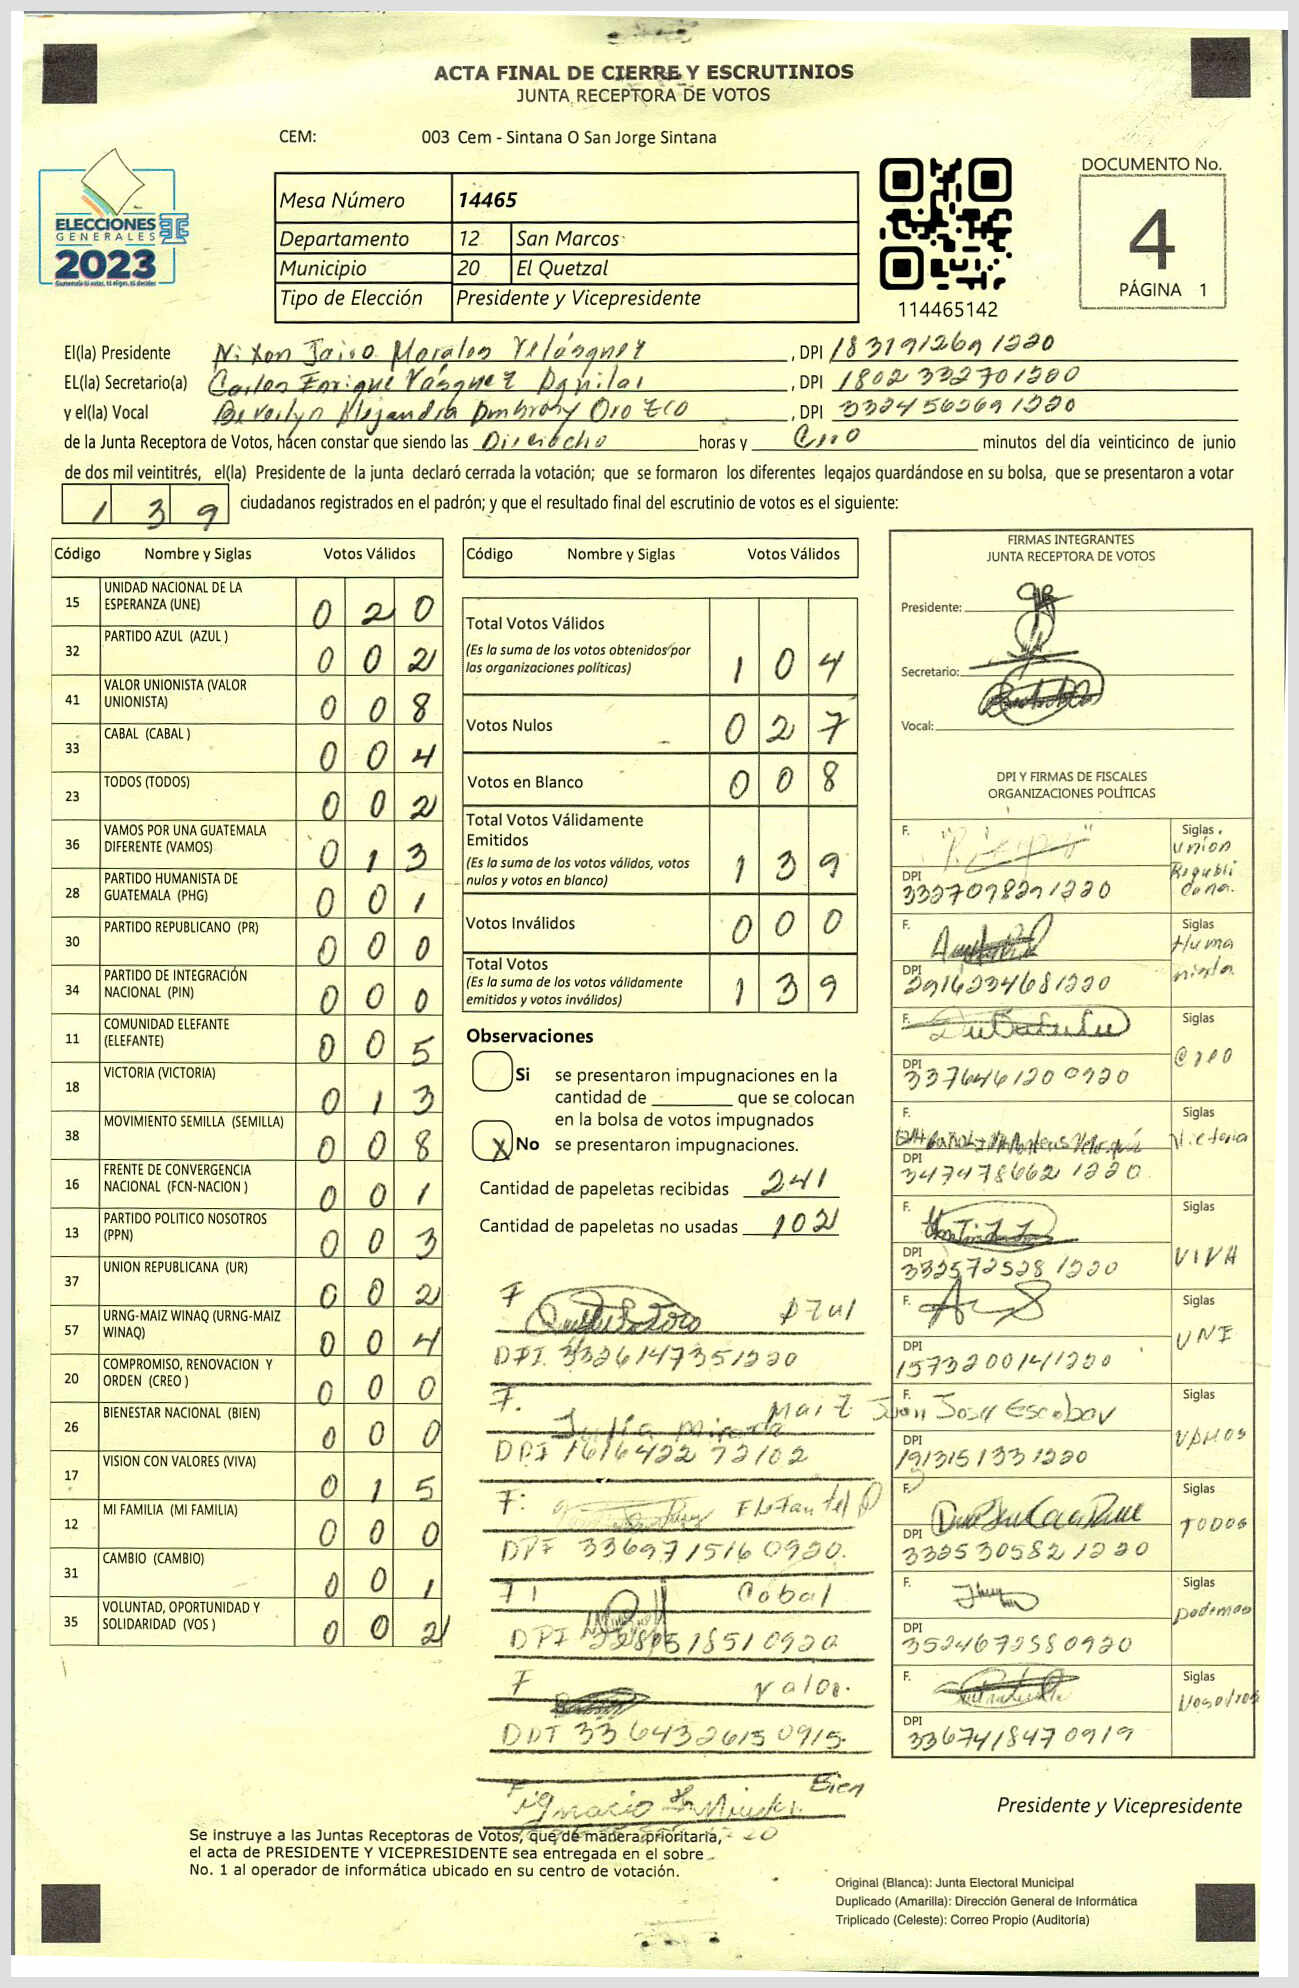 ACTA FINAL DE CIERRE Y ESCRUTINIOS
JUNTA RECEPTORA DE VOTOS
CEM: 003 Cem - Sintana O San Jorge Sintana
ELECCIONES
GENERALES
2023
Guatemala tú votas, tú eliges, tú decides
Mesa Número 14465
Departamento 12 San Marcos
Municipio 20 El Quetzal
Tipo de Elección Presidente y Vicepresidente
114465142
DOCUMENTO No.
4
PÁGINA 1
El(la) Presidente Nixon Jairo Morales Velásquez, DPI 1831912691220
EL(la) Secretario(a) Carlos Enrique Vásquez Aguilar, DPI 1802332701220
y el(la) Vocal Beverlyn Alejandra Ambrosy Orozco, DPI 3324565691220
de la Junta Receptora de Votos, hacen constar que siendo las Dieciocho horas y Cero minutos del día veinticinco de junio
de dos mil veintitrés, el(la) Presidente de la junta declaró cerrada la votación; que se formaron los diferentes legajos guardándose en su bolsa, que se presentaron a votar
139 ciudadanos registrados en el padrón; y que el resultado final del escrutinio de votos es el siguiente:
Código Nombre y Siglas Votos Válidos
15 UNIDAD NACIONAL DE LA
ESPERANZA (UNE) 0 2 0
32 PARTIDO AZUL (AZUL ) 0 0 2
41 VALOR UNIONISTA (VALOR
UNIONISTA) 0 0 8
33 CABAL (CABAL ) 0 0 4
23 TODOS (TODOS) 0 0 2
36 VAMOS POR UNA GUATEMALA
DIFERENTE (VAMOS) 0 1 3
28 PARTIDO HUMANISTA DE
GUATEMALA (PHG) 0 0 1
30 PARTIDO REPUBLICANO (PR) 0 0 0
34 PARTIDO DE INTEGRACIÓN
NACIONAL (PIN) 0 0 0
11 COMUNIDAD ELEFANTE
(ELEFANTE) 0 0 5
18 VICTORIA (VICTORIA) 0 1 3
38 MOVIMIENTO SEMILLA (SEMILLA) 0 0 8
16 FRENTE DE CONVERGENCIA
NACIONAL (FCN-NACION ) 0 0 1
13 PARTIDO POLITICO NOSOTROS
(PPN) 0 0 3
37 UNION REPUBLICANA (UR) 0 0 2
57 URNG-MAIZ WINAQ (URNG-MAIZ
WINAQ) 0 0 4
20 COMPROMISO, RENOVACION Y
ORDEN (CREO ) 0 0 0
26 BIENESTAR NACIONAL (BIEN) 0 0 0
17 VISION CON VALORES (VIVA) 0 1 5
12 MI FAMILIA (MI FAMILIA) 0 0 0
31 CAMBIO (CAMBIO) 0 0 1
35 VOLUNTAD, OPORTUNIDAD Y
SOLIDARIDAD (VOS ) 0 0 2
Código Nombre y Siglas Votos Válidos
Total Votos Válidos
(Es la suma de los votos obtenidos por
las organizaciones políticas) 1 0 4
Votos Nulos 0 2 7
Votos en Blanco 0 0 8
Total Votos Válidamente
Emitidos
(Es la suma de los votos válidos, votos
nulos y votos en blanco) 1 3 9
Votos Inválidos 0 0 0
Total Votos
(Es la suma de los votos válidamente
emitidos y votos inválidos) 1 3 9
Observaciones
Si se presentaron impugnaciones en la
cantidad de ________ que se colocan
en la bolsa de votos impugnados
X No se presentaron impugnaciones.
Cantidad de papeletas recibidas 241
Cantidad de papeletas no usadas 102
F Azul
DPI 3326147351220
F. Maiz
Julia Miranda
DPI 1616422 72102
F: Elefante
DPI 3369715160920.
F Cabal
DPI
F Valor.
DPI 3364326150915.
F Ignacio Bien
FIRMAS INTEGRANTES
JUNTA RECEPTORA DE VOTOS
Presidente:
Secretario:
Vocal:
DPI Y FIRMAS DE FISCALES
ORGANIZACIONES POLÍTICAS
F. Siglas Union
Republi
cana.
DPI
3327098291220
F. Siglas Huma
nista
DPI
2916234681220
F. Siglas Creo
DPI
3376461200920
F. Siglas Victoria
DPI
3474786621220
F. Siglas VIVA
DPI
3325725281220
F. Siglas UNE
DPI
1573200141220
F. Juan José Escobar Siglas VAMOS
DPI
1913151331220
F. Siglas TODOS
DPI
3325305821220
F. Siglas podemos
DPI
3524672580920
F. Siglas Nosotros
DPI
3367418470919
Presidente y Vicepresidente
Se instruye a las Juntas Receptoras de Votos, que de manera prioritaria,
el acta de PRESIDENTE Y VICEPRESIDENTE sea entregada en el sobre
No. 1 al operador de informática ubicado en su centro de votación.
Original (Blanca): Junta Electoral Municipal
Duplicado (Amarilla): Dirección General de Informática
Triplicado (Celeste): Correo Propio (Auditoría)